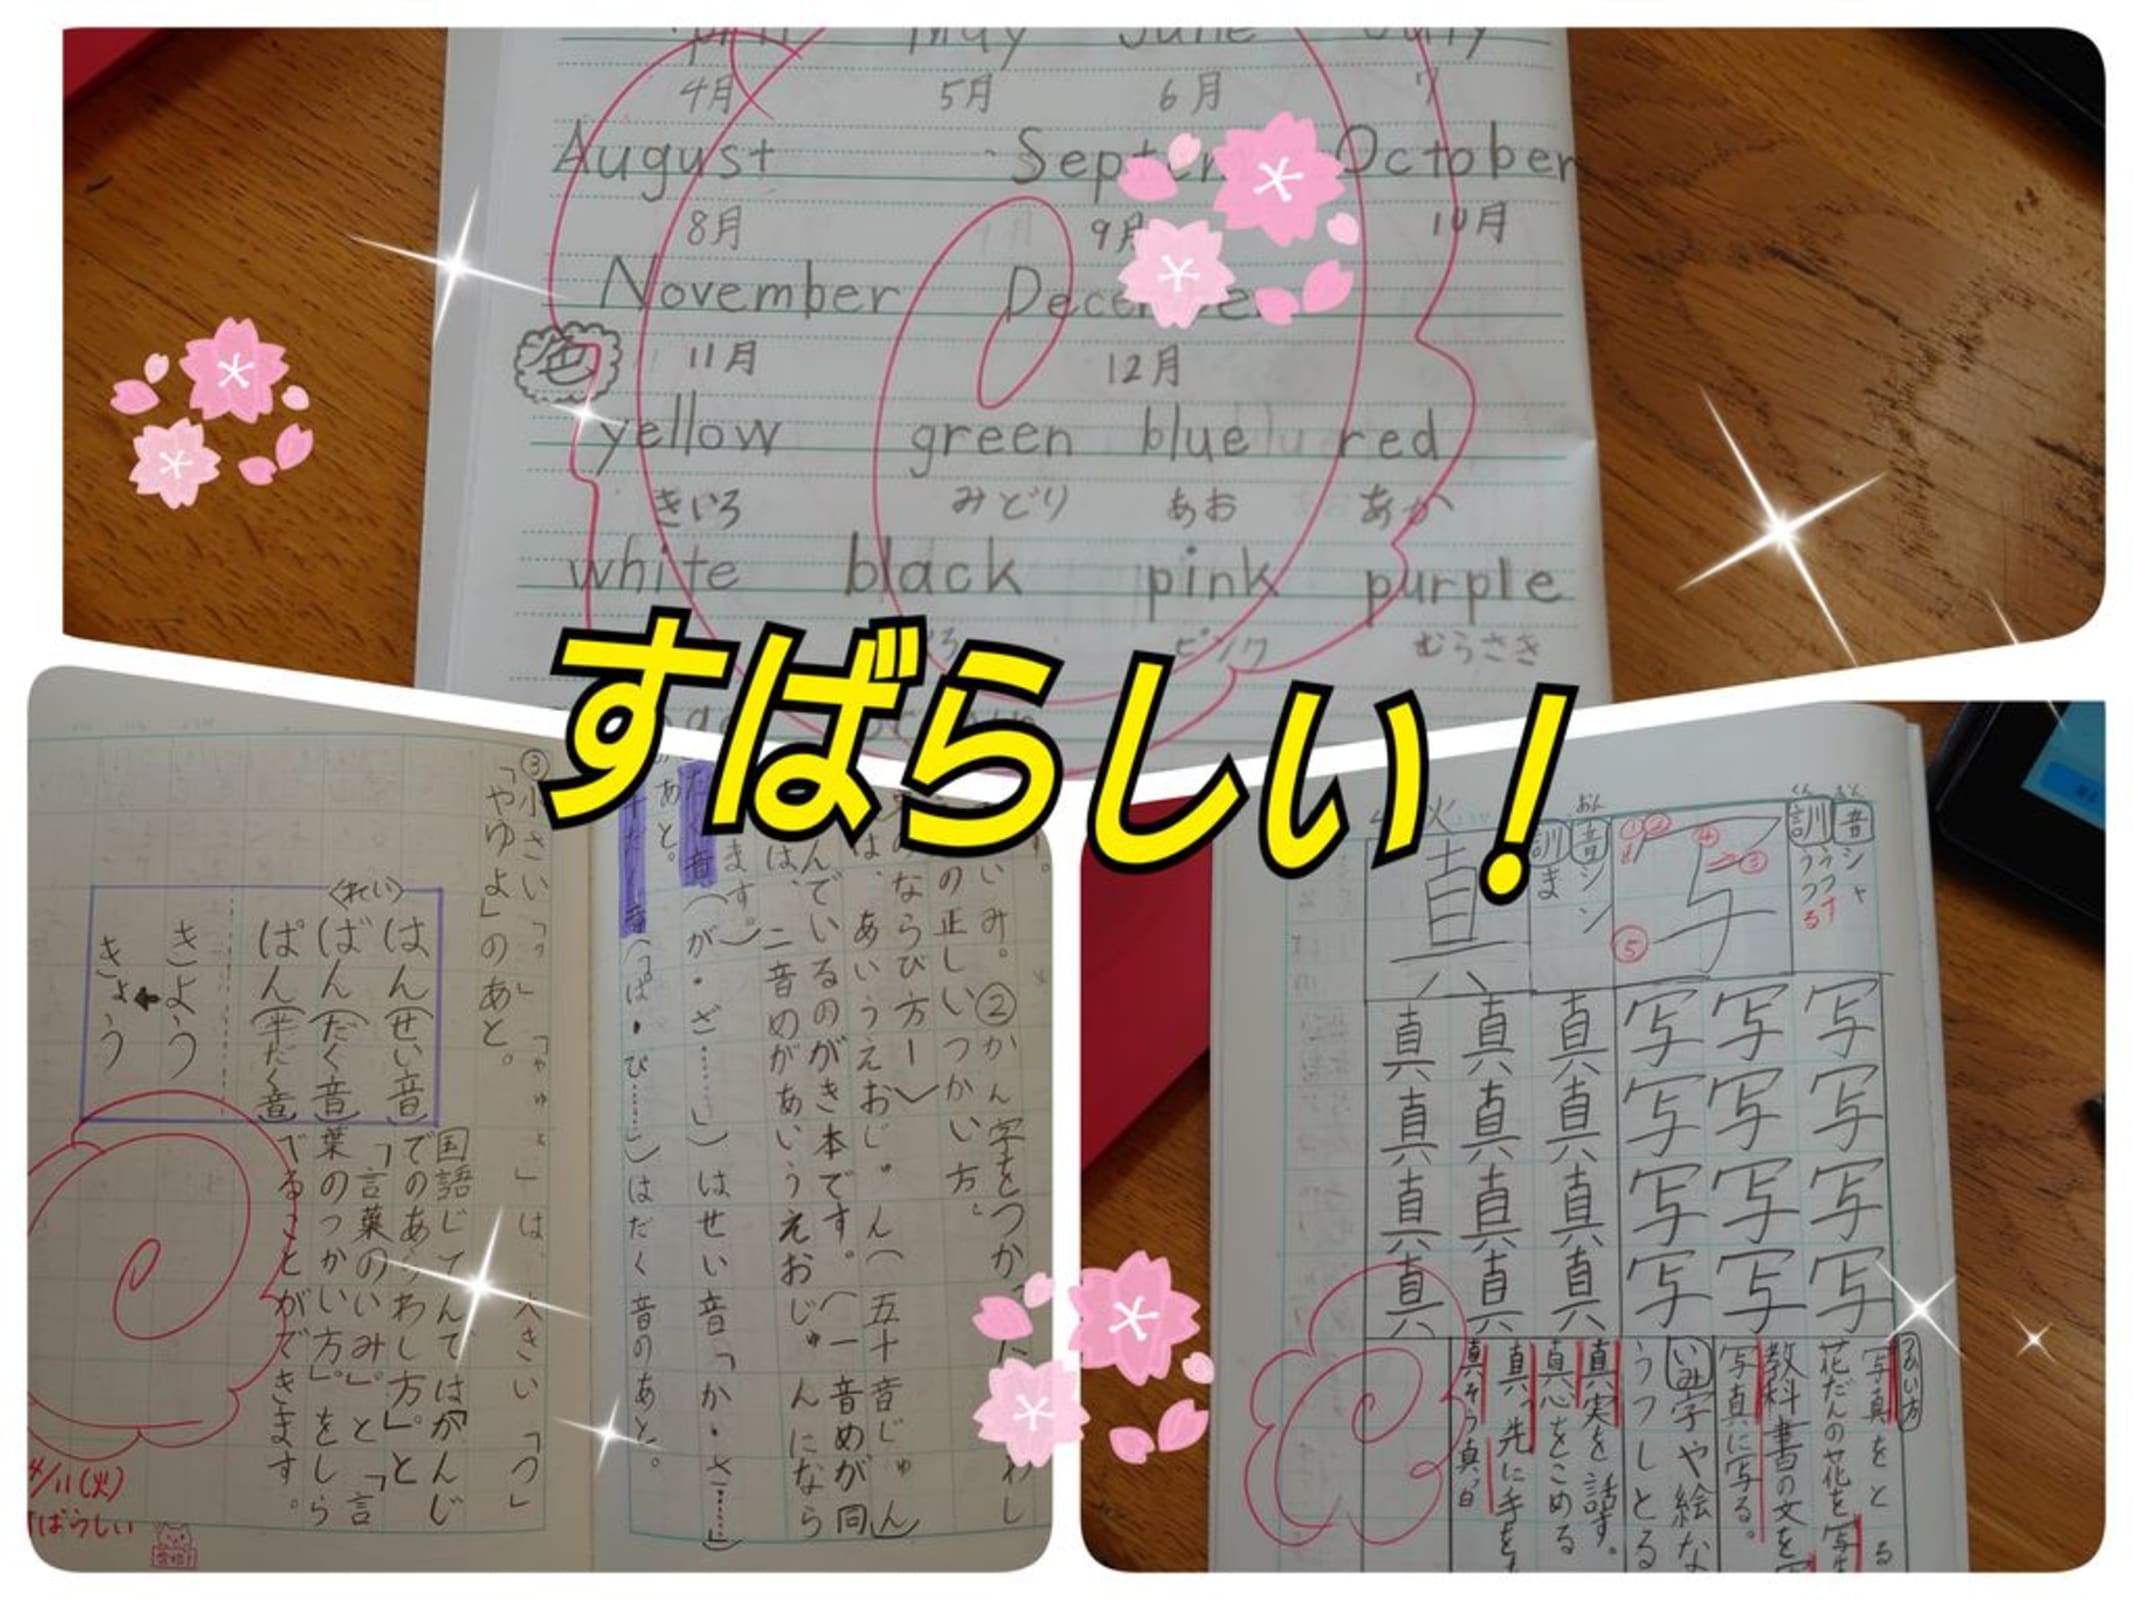 May June July
4月 5月 6月 7
August October
8月 9月 10月
November
色 11月 12月
yellow green blue red
きいろ みどり あお あか
white black pink purple
ピンク むらさき
すばらしい！
の正しいつかい方。
んでいるのがき本です。(一音めが同
は、二音めがあいうえおじゅんになら
ます。)
(が・ざ……」)はせい音「か・さ……」
のあと。
(「ぱ・ぴ……」)はだく音のあと。
③小さい「っ」「ゃゅょ」は、大きい「つ」
「やゆよ」のあと。
〈れい〉
はん(せい音)
ばん(だく音)
ぱん(半だく音)
きよう
きょう
国語じてんでは「かんじ
でのあらわし方。」と
「言葉のいみ。」と「言
葉のつかい方。」をしら
べることができます。
4/11(火)
すばらしい
音 シャ
訓 うつす
うつる
写
① ② ③ ④ ⑤
音 シン
訓 ま
真
火
写 写 写 真 真 真
写 写 写 真 真 真
写 写 写 真 真 真
写 写 写 真 真 真
つかい方
写真をとる
花だんの花を写
教科書の文を写
写真に写る。
いみ 字や絵な
うつしとる
真実を話す。
真心をこめる
真っ先に手を